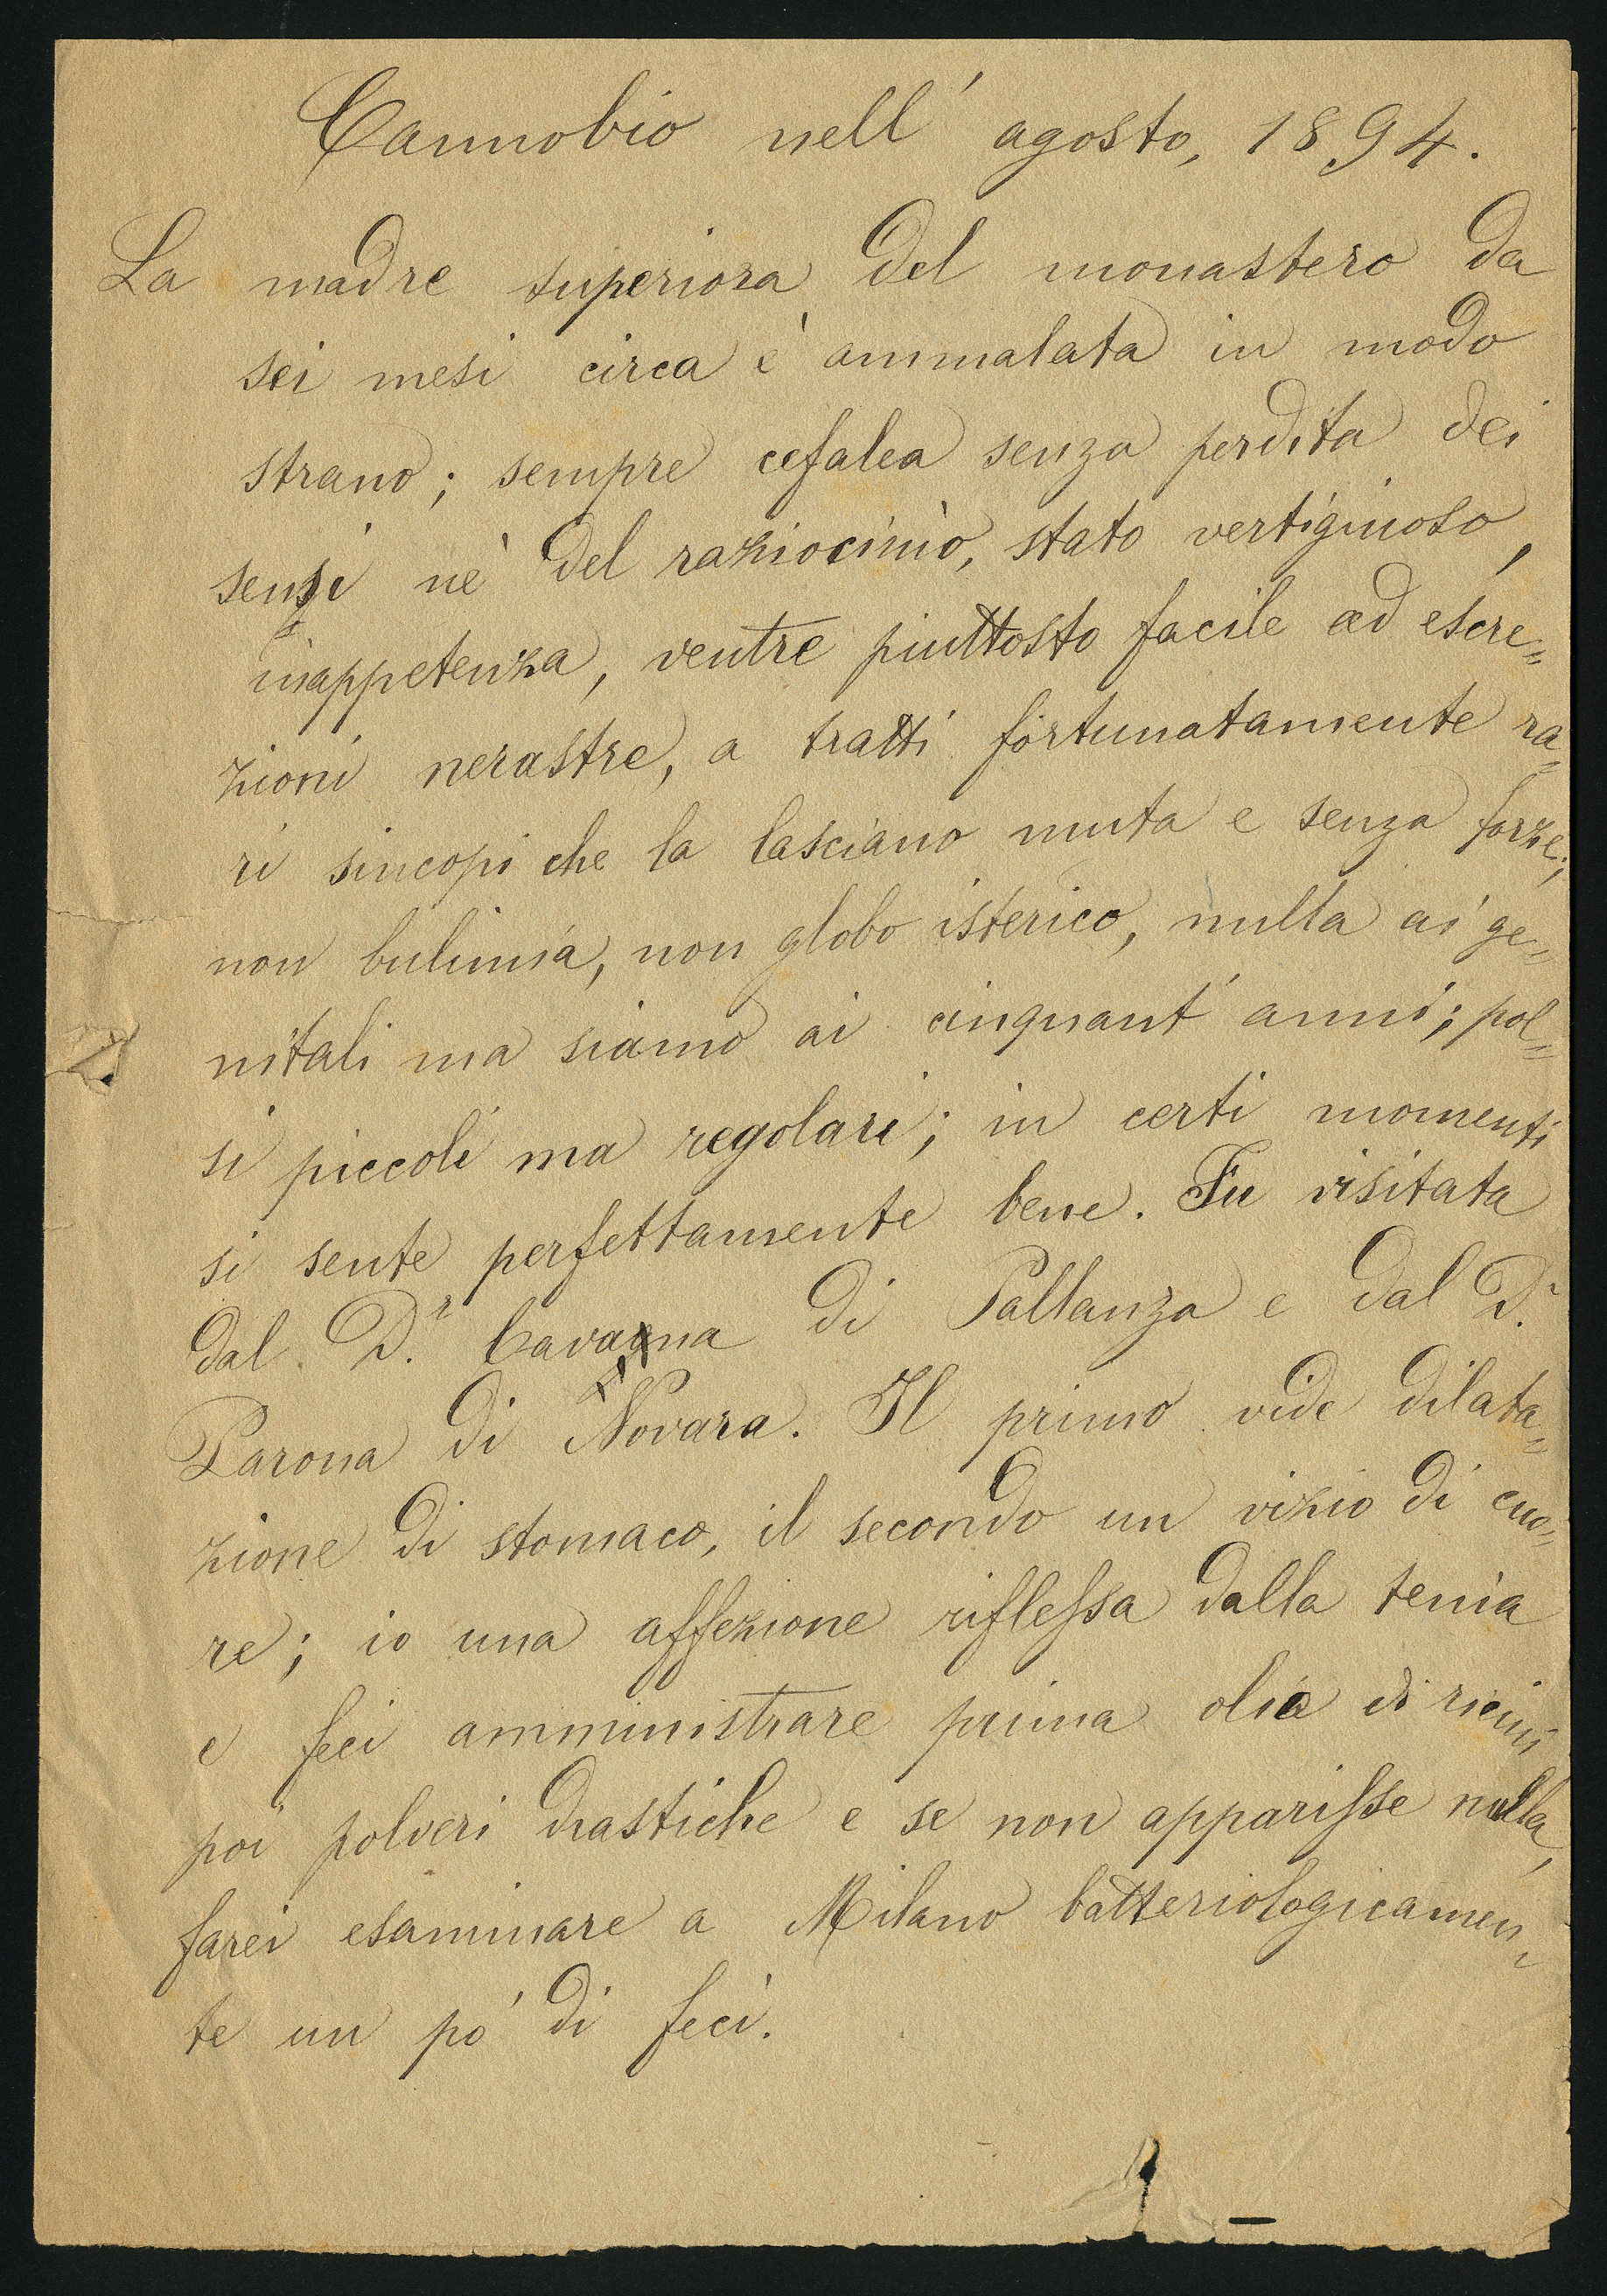 Cannobio nell' agosto, 1894.
La madre superiora del monastero da
sei mesi circa è ammalata in modo
strano; sempre cefalea senza perdita dei
sensi nè del raziocinio, stato vertiginoso,
inappetenza, ventre piuttosto facile ad escre=
zioni nerastre, a tratti fortunatamente ra=
ri sincopi che la lasciano muta e senza forze;
non bulimia, non globo isterico, nulla ai ge=
nitali ma siamo ai cinquant' anni; pol=
si piccoli ma regolari; in certi momenti
si sente perfettamente bene. Fu visitata
dal D.r Cavagna di Pallanza e dal D.r
Parona di Novara. Il primo vide dilata=
zione di stomaco, il secondo un vizio di cuo=
re; io una affezione riflessa dalla tenia
e feci amministrare prima olio di ricini
poi polveri drastiche e se non apparisse nulla,
farei esaminare a Milano batteriologicamen=
te un po' di feci.